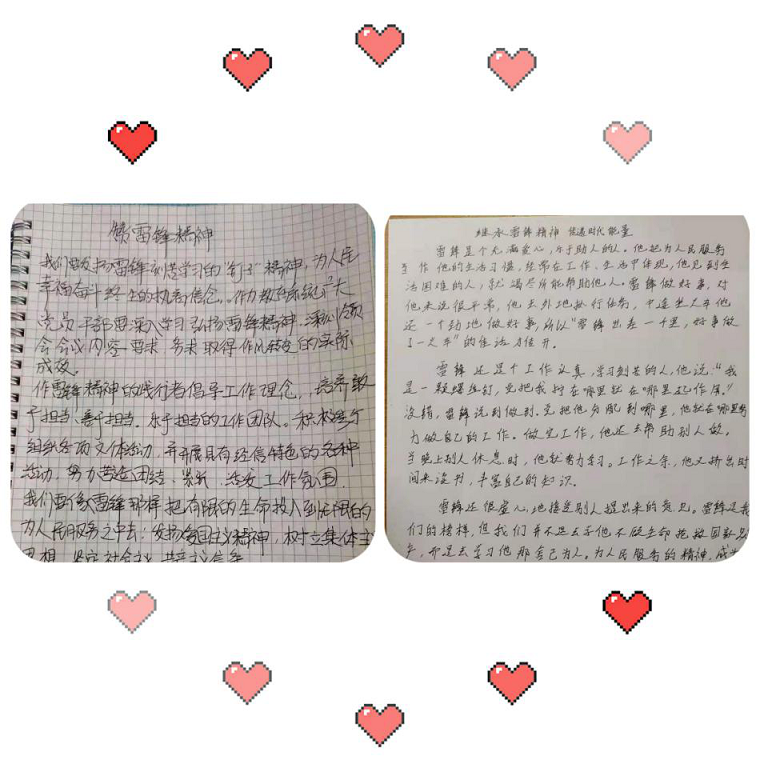 赞雷锋精神
我们要发扬雷锋刻苦学习的"钉子"精神,为人民
幸福奋斗终生的执着信念。作为系统广大
党员干部要深入学习弘扬雷锋精神,深刻领
会会议内容要求,务求取得作风转变的实际
成效。
作雷锋精神的践行者倡导工作理念,培养敢
于担当、善于担当、乐于担当的工作团队。积极参与
组织各项文体活动,并开展具有经信特色的各种
活动,努力营造团结、紧张、活发工作氛围
我们要像雷锋那样把有限的生命投入到无限的
为人民服务之中去;发扬爱国主义精神,树立集体主
思想,坚定社会主义、共产主义信念
继承雷锋精神 传递时代能量
雷锋是个充满爱心,乐于助人的人。他把为人民服务
当作他的生活习惯,经常在工作、生活中体现,他见到生
活困难的人,就竭尽所能帮助他人。雷锋做好事,对
他来说很平常,他去外地执行任务,中途坐火车他
还一个劲地做好事,所以"雷锋出差一千里,好事做
了一火车"的佳话力佳开。
雷锋还是个工作认真,学习刻苦的人,他说:"我
是一颗螺丝钉,党把我拧在哪里就在哪里起作用。"
没错,雷锋说到做到。党把他分配到哪里,他就在哪里努
力做自己的工作。做完工作,他还去帮助别人做。
当晚上别人休息时,他就努力学习。工作之余,他又挤出时
间来读书,丰富自己的知识。
雷锋还很虚心,地接受别人提出来的意见。雷锋是我
们的榜样,但我们并不是去学他不顾生命抢救国家财
产,而是去学习他那舍己为人。为人民服务的精神,成为